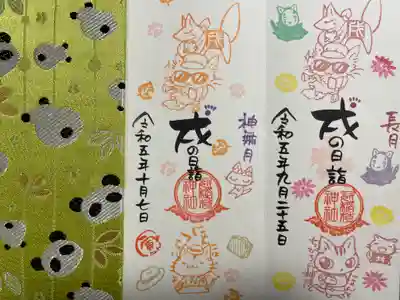 長月
戌の日詣
令和五年九月二十五日
神無月
戌の日詣
令和五年十月七日